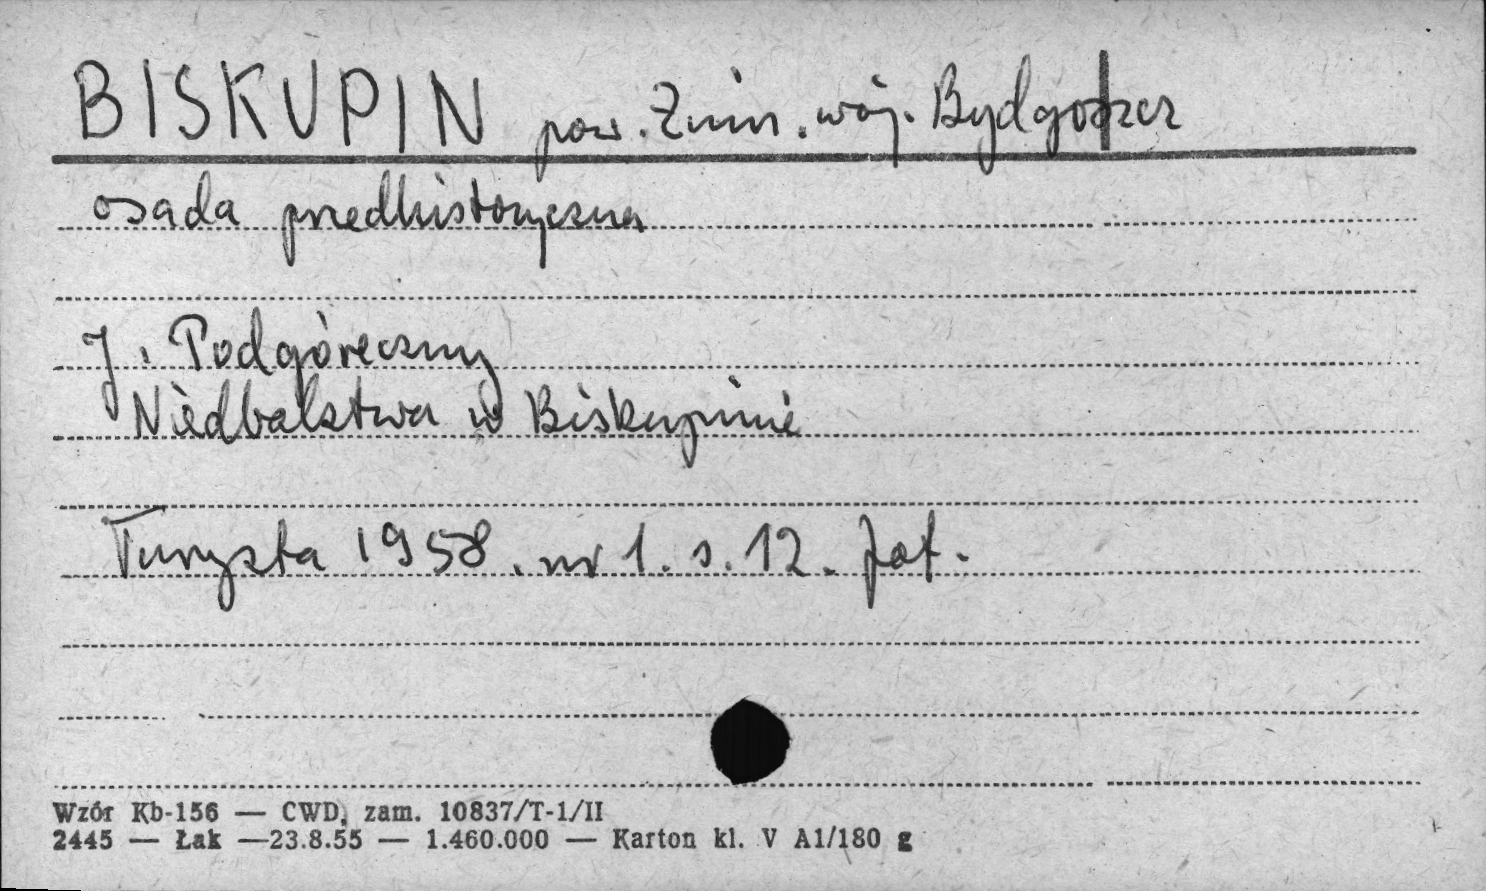 BISKUPIN pow. Żnin. woj. Bydgoszcz
osada predhistoryczna
J. Podgóreczny
Niedbalstwa w Biskupinie
Turysta 1958. nr 1. s. 12. fot.
Wzór Kb-156 — CWD, zam. 10837/T-1/II
2445 — Łak —23.8.55 — 1.460.000 — Karton kl. V A1/180 g